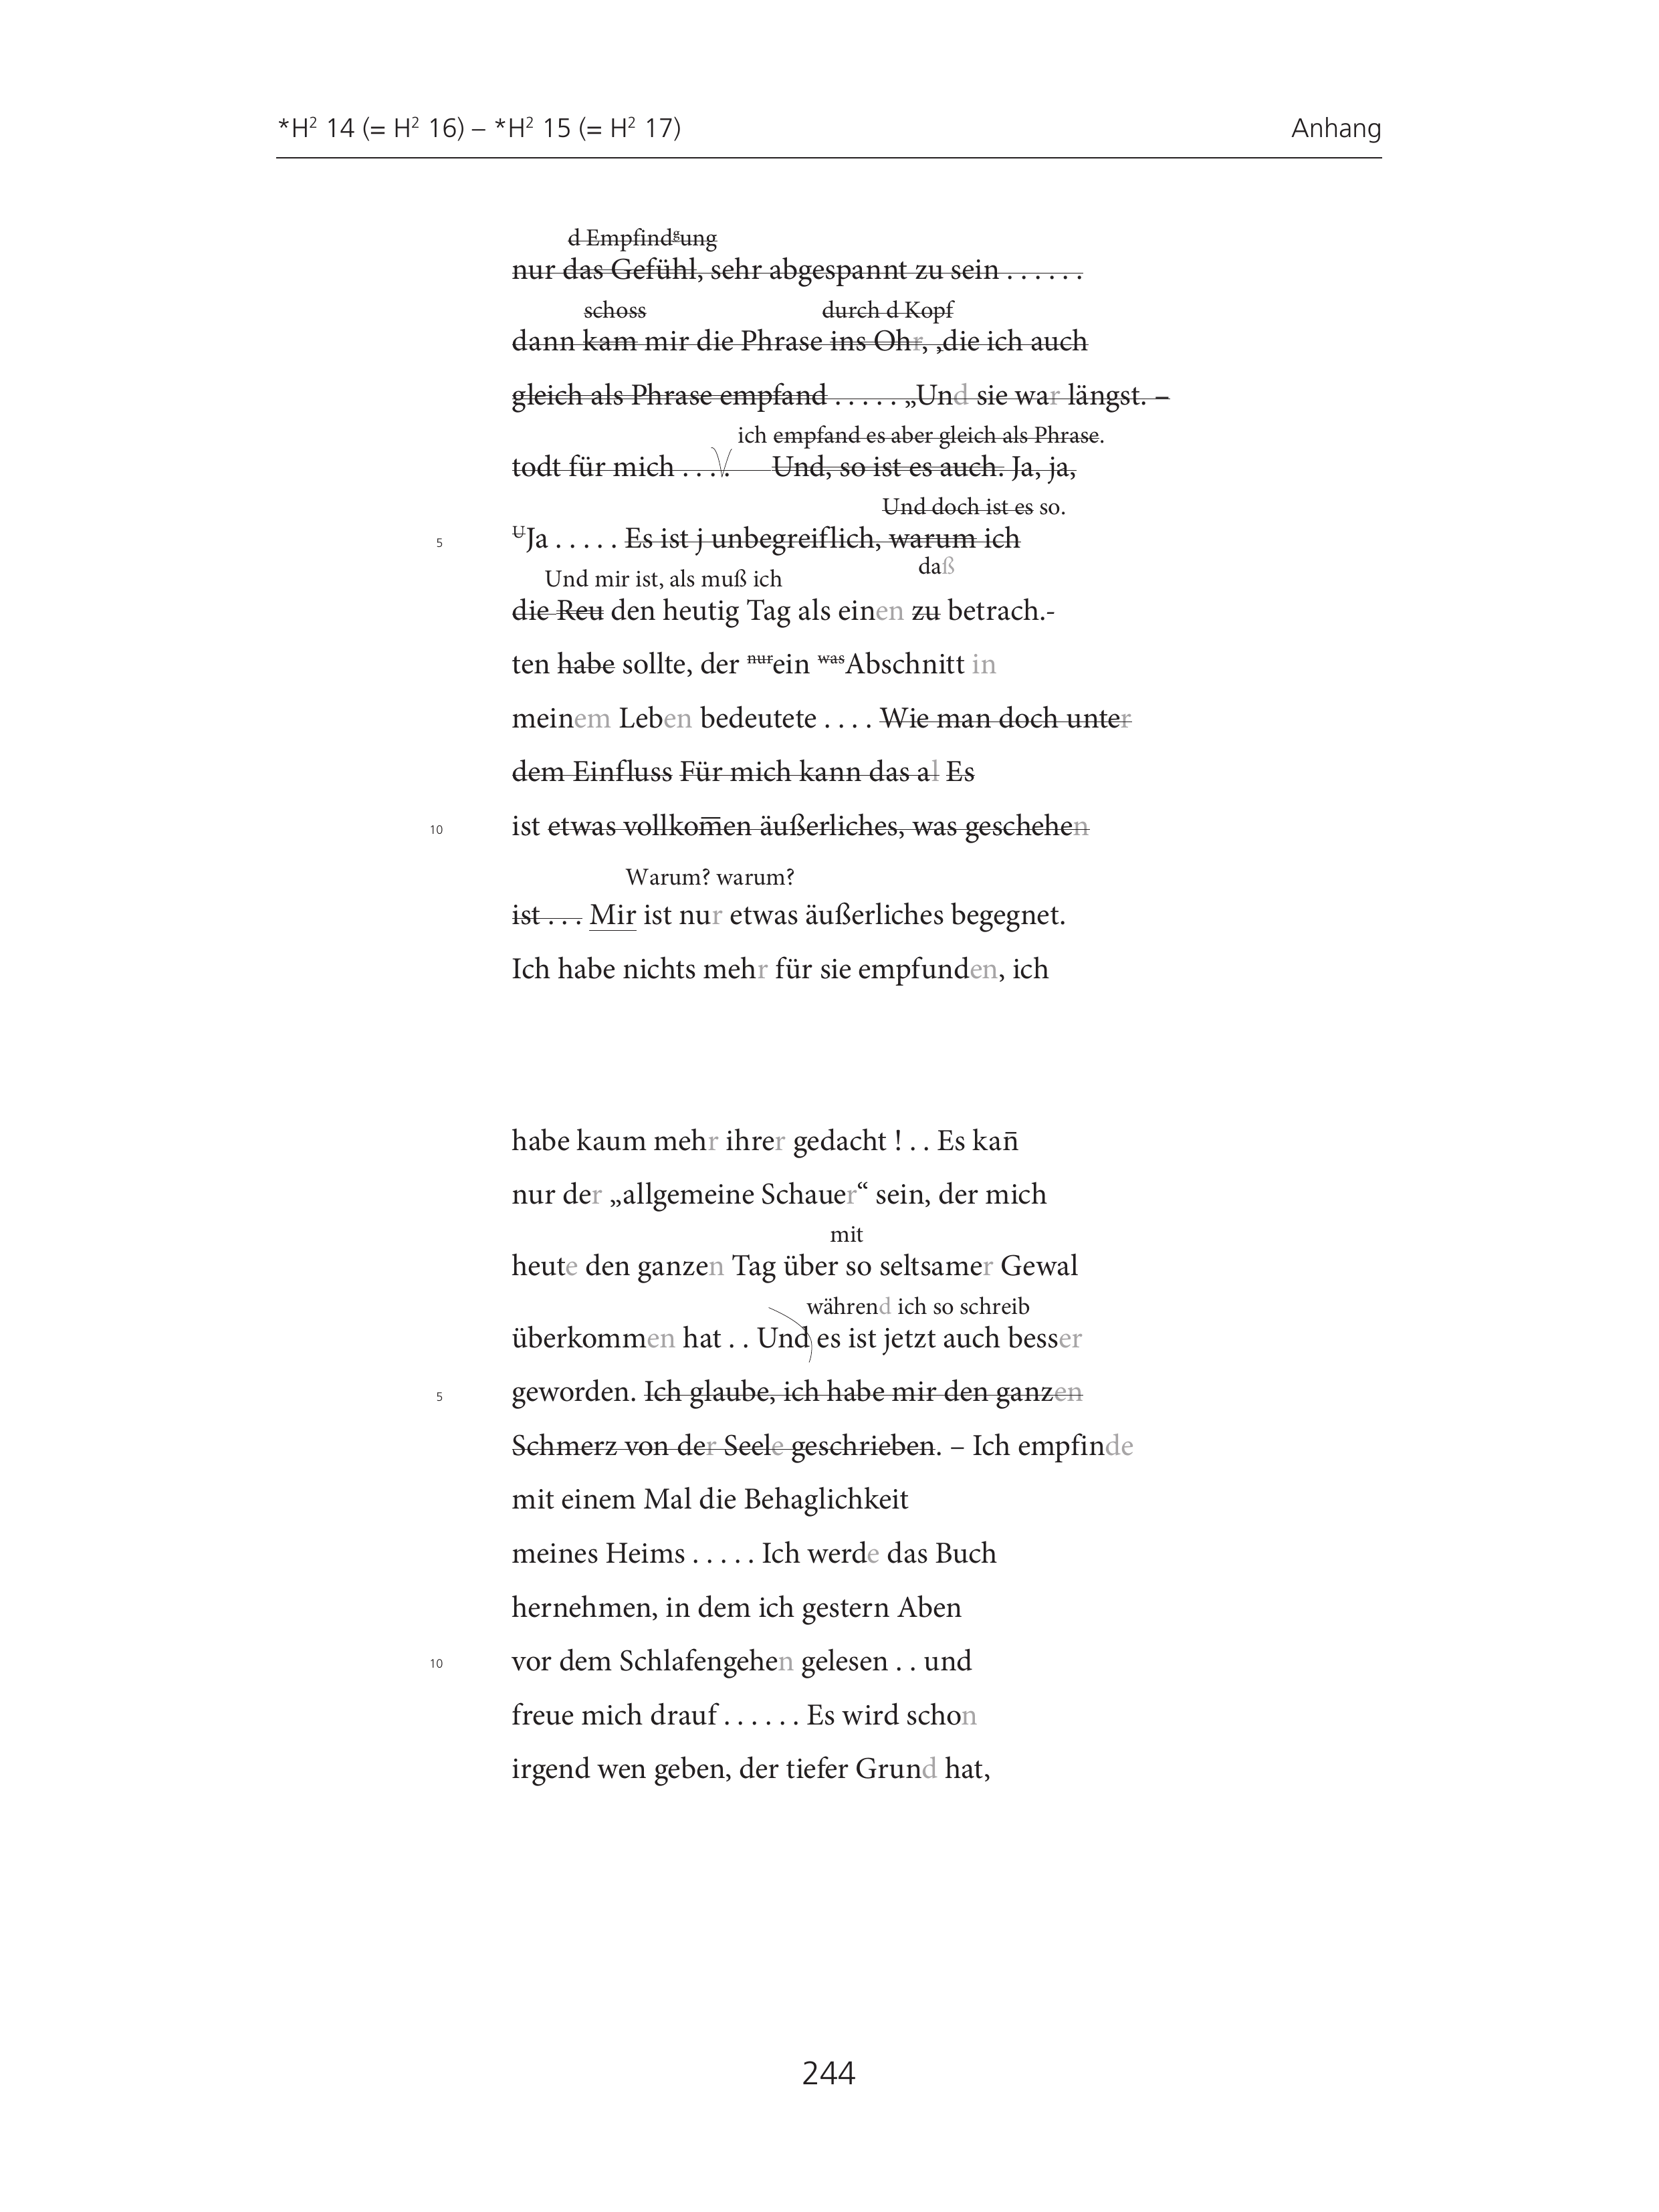 *H² 14 (= H² 16) – *H² 15 (= H² 17) Anhang
d Empfindgung
nur das Gefühl, sehr abgespannt zu sein . . . . . .
schoss durch d Kopf
dann kam mir die Phrase ins Ohr, ‚die ich auch
gleich als Phrase empfand . . . . . „Und sie war längst. –
ich empfand es aber gleich als Phrase.
todt für mich . . . . Und, so ist es auch. Ja, ja,
Und doch ist es so.
5 UJa . . . . . Es ist j unbegreiflich, warum ich
daß
Und mir ist, als muß ich
die Reu den heutig Tag als einen zu betrach.-
ten habe sollte, der nurein wasAbschnitt in
meinem Leben bedeutete . . . . Wie man doch unter
dem Einfluss Für mich kann das al Es
10 ist etwas vollkom̅en äußerliches, was geschehen
Warum? warum?
ist . . . Mir ist nur etwas äußerliches begegnet.
Ich habe nichts mehr für sie empfunden, ich
habe kaum mehr ihrer gedacht ! . . Es kan̅
nur der „allgemeine Schauer“ sein, der mich
mit
heute den ganzen Tag über so seltsamer Gewal
während ich so schreib
überkommen hat . . Und es ist jetzt auch besser
5 geworden. Ich glaube, ich habe mir den ganzen
Schmerz von der Seele geschrieben. – Ich empfinde
mit einem Mal die Behaglichkeit
meines Heims . . . . . Ich werde das Buch
hernehmen, in dem ich gestern Aben
10 vor dem Schlafengehen gelesen . . und
freue mich drauf . . . . . . Es wird schon
irgend wen geben, der tiefer Grund hat,
244